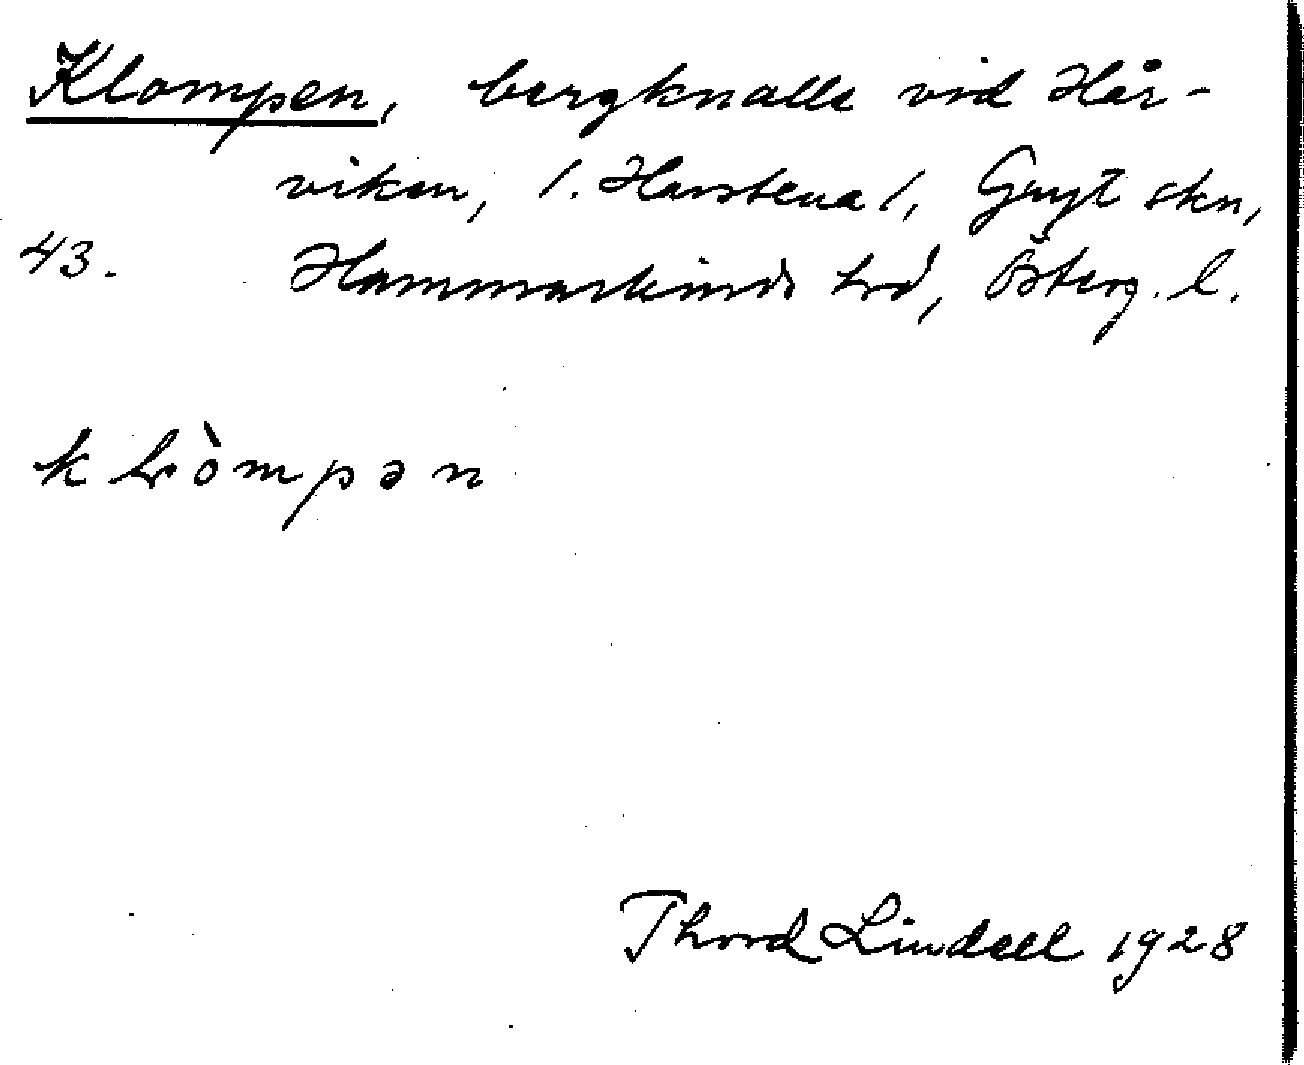 Klompen, bergknalle vid Hår-
viken, /. Harstena /, Gryt skn,
43. Hammarkinds hrd, Österg. l.
kLòmpən
Thord Lindell 1928